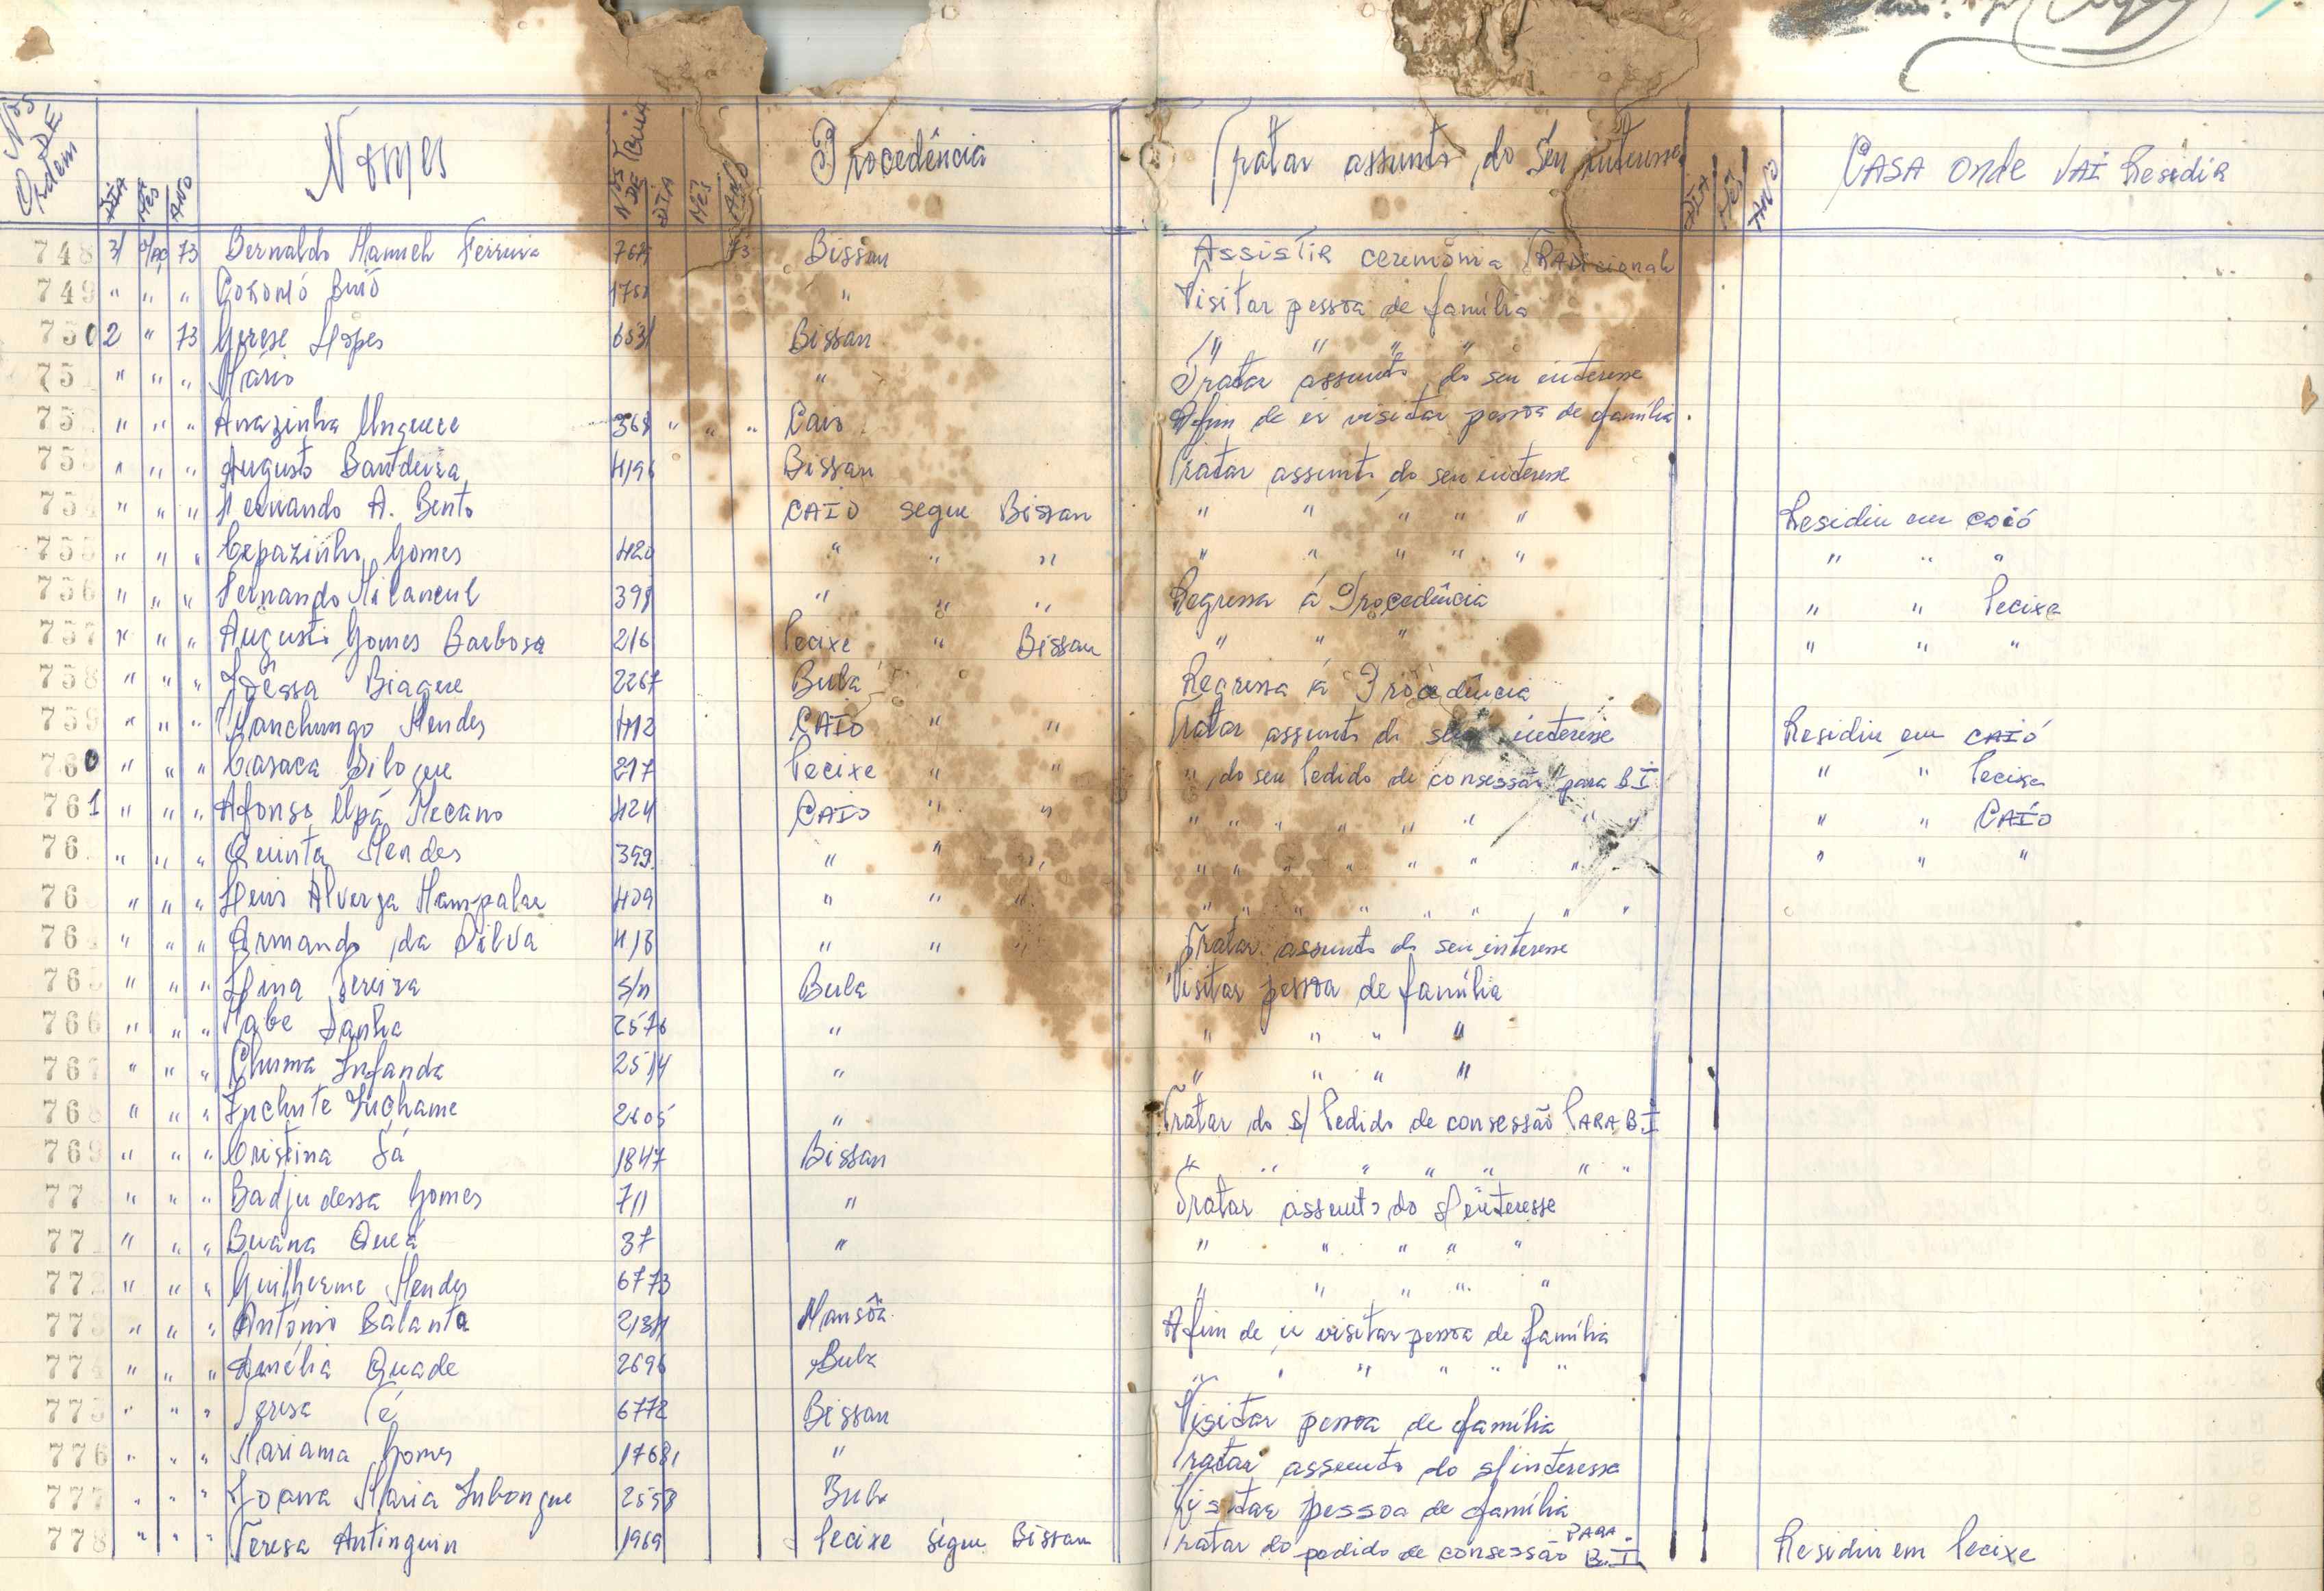 Nos DE Ordem DIA MÊS ANO Nomes Nos DE Guia DIA MÊS ANO Procedência Tratar assunto do Seu interesse DIA MÊS ANO CASA onde VAI Residir
748 31 73 Bernaldo Manuel Ferreira 13 Bissau Assistir ceremónia Tradicional
749 " " " " Visitar pessoa de família
750 2 " 73 Lopes 6531 Bissau " " " "
751 " " " Mário " Tratar assunto do seu interesse
75 " " " Anazinha 368 " " " Caio Afim de ir visitar pessoa de família.
75 " " " Augusto Bandeira 4196 Bissau Tratar assunto do seu interesse
75 " " " Fernando A. Bento CAIO segue Bissau " " " " " Residiu em caió
755 " " " Gomes 420 " " " " " " " " " " "
756 " " " Fernando 398 " " " Regressa á Procedência " " Pecixe
757 " " " Augusto Gomes Barbosa 216 Pecixe " Bissau " " " " " "
758 " " " Biague 2267 Bula Regressa á Procedência
759 " " " Mendes 412 CAIO " " Tratar assunto do seu interesse Residiu em CAIÓ
760 " " " 217 Pecixe " " " do seu Pedido de consessão para B I " " Pecixe
761 " " " Afonso 424 CAIO " " " " " " " " " " " " CAIÓ
76 " " " Quinta Mendes 399 " " " " " " " " " " " " "
76 " " " 409 " " " " " " " " " " "
76 " " " Armando da Silva 418 " " " Tratar assunto do seu interesse
765 " " " Pereira S/n Bula Visitar pessoa de família
766 " " " Sanha 2576 " " " " "
767 " " " Infanda 2514 " " " " "
768 " " " 2605 " Tratar do S/ Pedido de consessão PARA B.I
769 " " " Cristina Sá 1847 Bissau " " " " " " "
77 " " " Badjudessa Gomes 711 " Tratar assunto do s/ interesse
77 " " " Buana Queá 37 " " " " " "
772 " " " Guilherme Mendes 6773 " " " " "
773 " " " António Balanta Mansôa Afim de ir visitar pessoa de família
774 " " " Amélia Quade 2696 Bula " " " " " "
775 " " " Teresa Té 6772 Bissau Visitar pessoa de família
776 " " " Mariama Gomes 17681 " Tratar assunto do s/interesse
777 " " " Joana Maria 2558 Bula Visitar pessoa de família
778 " " " Teresa Antinguin 1969 Pecixe segue Bissau Tratar do pedido de consessão PARA B.I Residiu em Pecixe